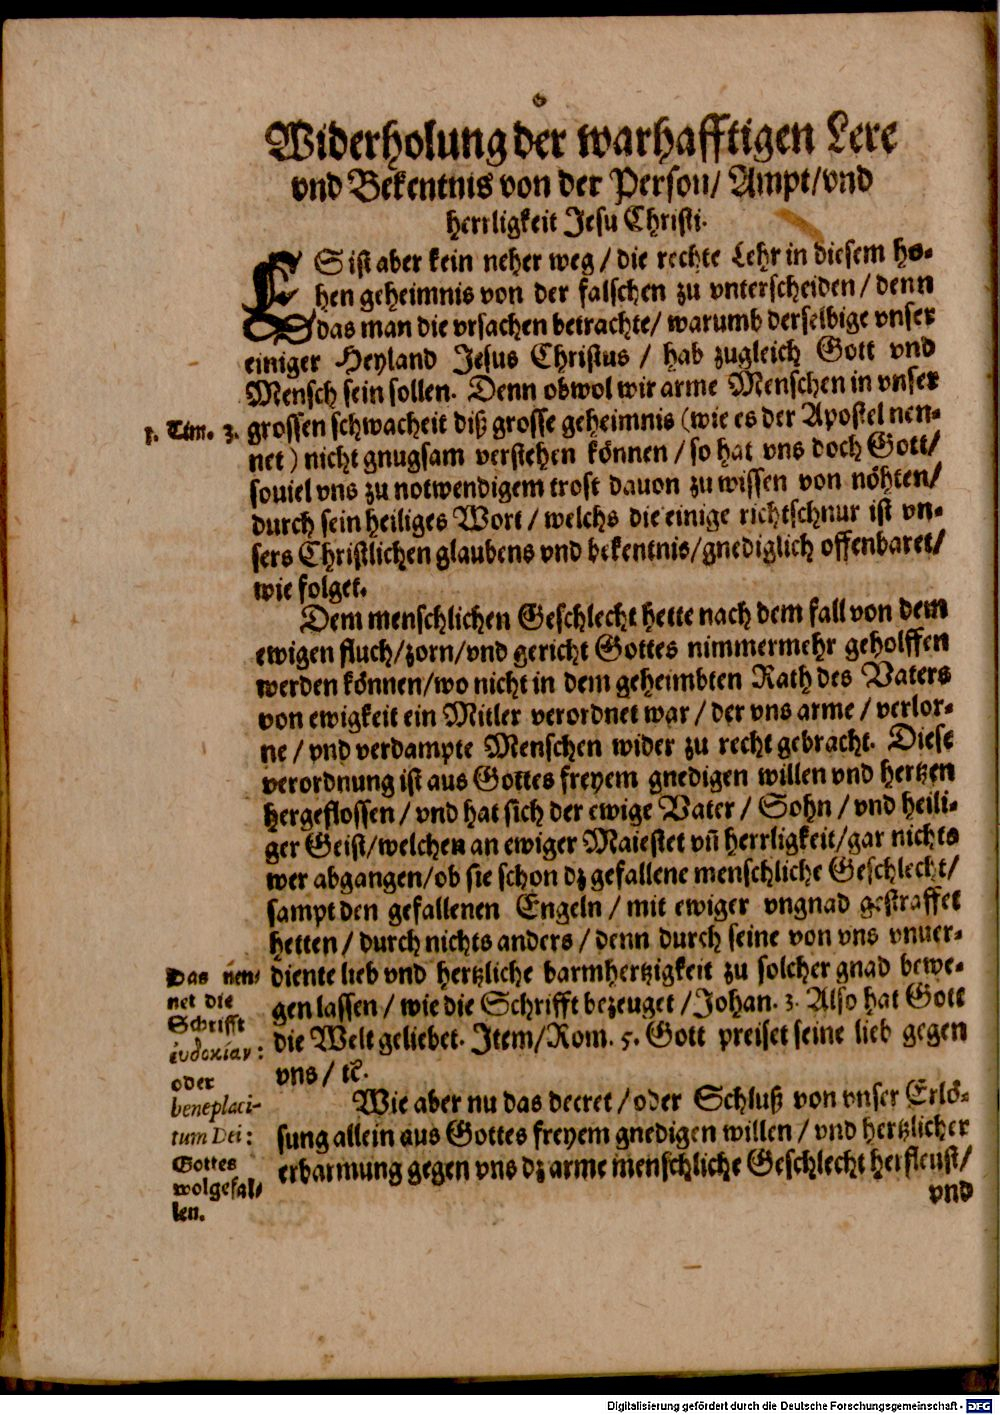 Widerholung der warhafftigen Lere
vnd Bekentnis von der Person/ Ampt/vnd
herrligkeit Jesu Christi.
ES ist aber kein neher weg / die rechte Lehr in diesem ho-
hen geheimnis von der falschen zu vnterscheiden / denn
das man die vrsachen betrachte/ warumb derselbige vnser
einiger Heyland Jesus Christus / hab zugleich Gott vnd
Mensch sein sollen. Denn obwol wir arme Menschen in vnser
1. Tim. 3.
grossen schwacheit diß grosse geheimnis (wie es der Apostel nen-
net) nicht gnugsam verstehen können / so hat vns doch Gott/
souiel vns zu notwendigem trost dauon zu wissen von nöhten/
durch sein heiliges Wort / welchs die einige richtschnur ist vn-
sers Christlichen glaubens vnd bekentnis/gnediglich offenbaret/
wie folget.
Dem menschlichen Geschlecht hette nach dem fall von dem
ewigen fluch/zorn/vnd gericht Gottes nimmermehr geholffen
werden können/wo nicht in dem geheimbten Rath des Vaters
von ewigkeit ein Mitler verordnet war / der vns arme / verlor-
ne / vnd verdampte Menschen wider zu recht gebracht. Diese
verordnung ist aus Gottes freyem gnedigen willen vnd hertzen
hergeflossen / vnd hat sich der ewige Vater / Sohn / vnd heili-
ger Geist/welchen an ewiger Maiestet vñ herrligkeit/gar nichts
wer abgangen/ob sie schon dz gefallene menschliche Geschlecht/
sampt den gefallenen Engeln / mit ewiger vngnad gestraffet
hetten / durch nichts anders / denn durch seine von vns vnuer-
diente lieb vnd hertzliche barmhertzigkeit zu solcher gnad bewe-
gen lassen / wie die Schrifft bezeuget / Johan. 3. Also hat Gott
die Welt geliebet. Item/Rom. 5. Gott preiset seine lieb gegen
vns / ꝛc.
Das nen-
net die
Schrifft
ἐυδοκίαν:
oder
beneplaci-
tum Dei:
Gottes
wolgefal-
len.
Wie aber nu das decret / oder Schluß von vnser Erlö-
sung allein aus Gottes freyem gnedigen willen / vnd hertzlicher
erbarmung gegen vns dz arme menschliche Geschlecht herfleust/
vnd
Digitalisierung gefördert durch die Deutsche Forschungsgemeinschaft - DFG